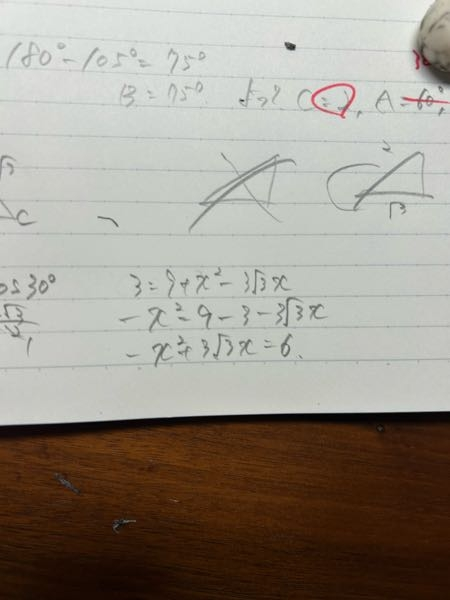 180°-105°=75°
30
B=75° よって C=2, A=60°
2
√3
C
os30°
3=9+x²-3√3x
-x²=9-3-3√3x
-x²+3√3x=6.